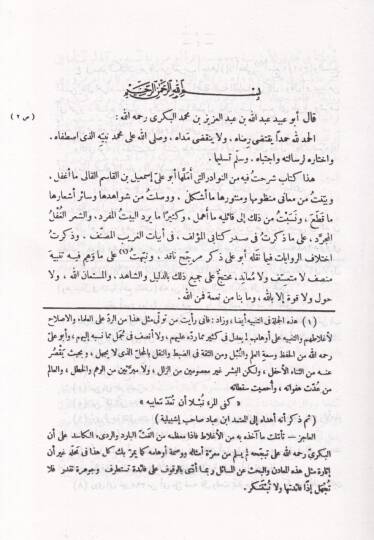 بسم الله الرحمن الرحيم
قال أبو عبيد عبد الله بن عبد العزيز بن محمد البكرى رحمه الله :
(ص ٢)
الحمد لله حمداً يقتضى رضاه ، ولا ينقضى مَداه ، وصلى الله على محمد نبيّه الذى اصطفاه ،
واختاره لرسالته واجتباه ، وسلّم تسليما .
هذا كتاب شرحتُ فيه من النوادر التى أملّها أبو علىّ إسمعيل بن القاسم القالى ما أغفل ،
وبيّنتُ من معانى منظومها ومنثورها ما أشكلَ ، ووصلتُ من شواهدها وسائر أشعارها
ما قطَع ، ونَسَبْتُ من ذلك إلى قائليه ما أهمل ، وكثيرًا ما يرد البيت المفرد ، والشعر الغُفْلُ
المجرّد ، على ما ذكرتُ فى صدر كتابى المؤلف ، فى أبيات الغريب المصنّف ، وذكرتُ
اختلاف الروايات فيما نقله أبو على ذكر مرجّح ناقد ، ونبّهتُ (١) على ما وَهِم فيه تنبيهَ
منصف لا متعسِّف ولا مُعاند ، محتجّ على جميع ذلك بالدليل والشاهد ، والمستعان الله ، ولا
حول ولا قوة إلا بالله ، وما بنا من نعمة فمن الله .
(١) هذه الجملة فى التنبيه أيضا ، وزاد : فانى رأيت من تولّى مثل هذا من الردّ على العلماء والاصلاح
لأغلاطهم والتنبيه على أوهامهم لم يعدل فى كثير مما ردّه عليهم ، ولا أنصف فى جُمَل مما نسبه إليهم ، وأبو علىّ
رحمه الله من الحفظ وسعة العلم والنُبْل ومن الثقة فى الضبط والنقل بالمحلّ الذى لا يجهل ، وبحيث يَقْصُر
عنه من الثناء الأحفل ، ولكنّ البشر غير معصومين من الزلل ، ولا مبرّئين من الوهم والخطل ، والعالم
من عُدّت هفواته ، وأُحصيت سقطاته
« كفى المرء نُبْلا أن تُعَدّ معايبه »
(ثم ذكر أنه أهداه إلى المعتمد ابن عباد صاحب إشبيلية)
العاجز — تأمّلت ما أخذه به من الأغلاط فاذا معظمه من الغثّ البارد والردىء الكاسد على أن
البكرىّ رحمه الله على تبجّحه لم يسلم من معرّة أمثاله ووصمة أوهامه كما يمرّ بك كل هذا فى محلّه غير أن
إثارة مثل هذه المعادن والبحث عن المسائل ربما أتتنى بالوقوف على فائدة تستطرف وجوهرة تقدّر فلا
تُجْهَل إذًا فائدتها ولا تُسْتَنكر .